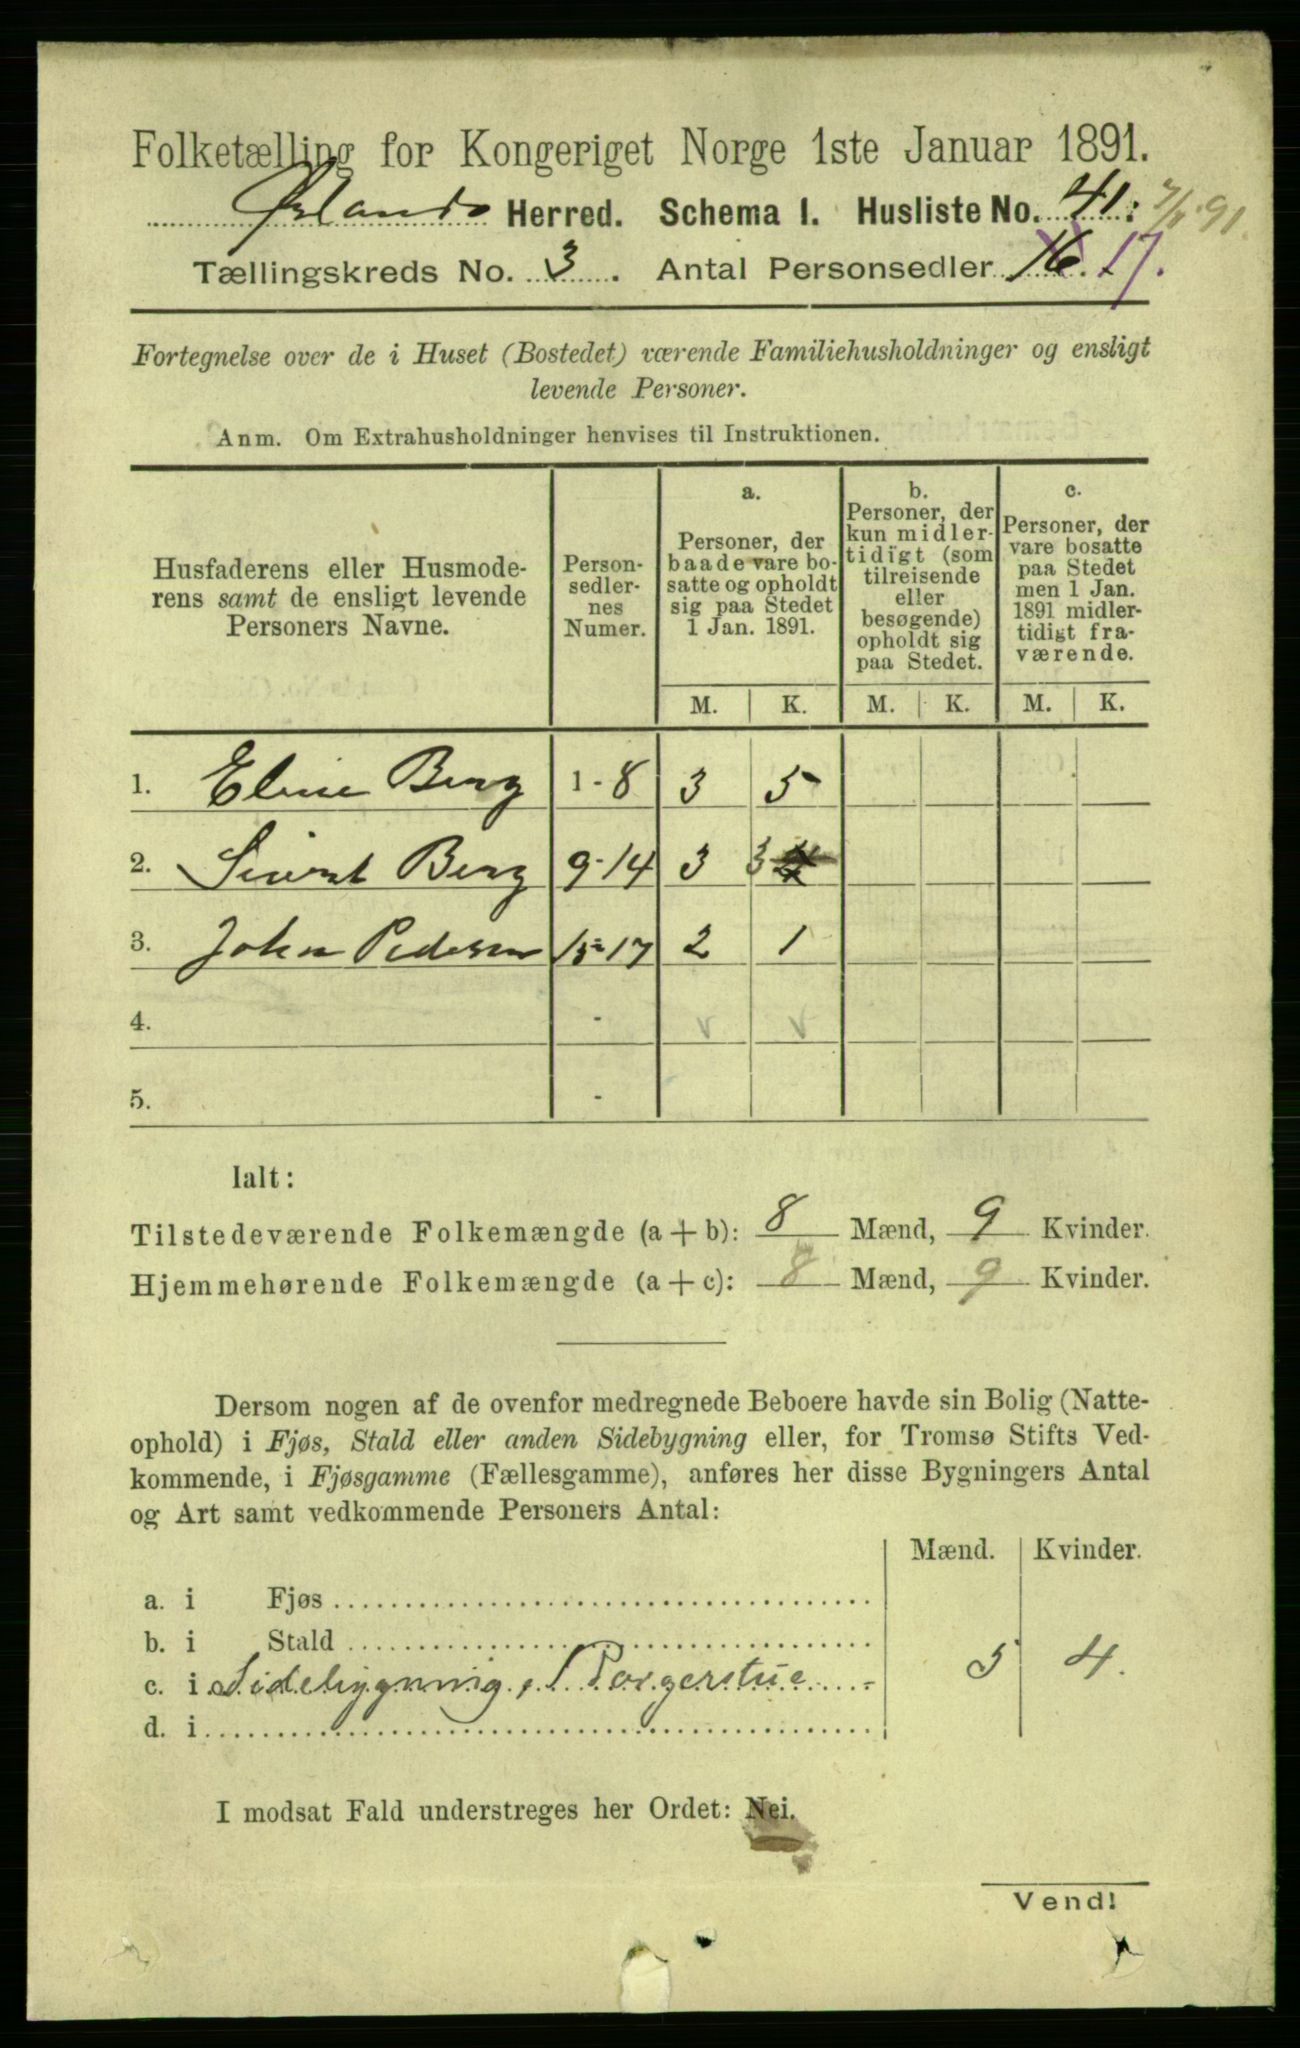 Folketælling for Kongeriget Norge 1ste Januar 1891.
Ørlands Herred. Schema 1. Husliste No. 41.
Tællingskreds No. 3. Antal Personsedler 16. 17.
Fortegnelse over de i Huset (Bostedet) værende Familiehusholdninger og ensligt
levende Personer.
Anm. Om Extrahusholdninger henvises til Instruktionen.
Husfaderens eller Husmode-
rens samt de ensligt levende
Personers Navne.
Person-
sedler-
nes
Numer.
a.
Personer, der
baade vare bo-
satte og opholdt
sig paa Stedet
1 Jan. 1891.
b.
Personer, der
kun midler-
tidigt (som
tilreisende
eller
besøgende)
opholdt sig
paa Stedet.
c.
Personer, der
vare bosatte
paa Stedet
men 1 Jan.
1891 midler-
tidigt fra-
værende.
M. K. M. K. M. K.
1. Eline Berg 1-8 3 5
2. Sivert Berg 9-14 3 3 4
3. John Pedersen 15-17 2 1
4. - v v
5. -
Ialt:
Tilstedeværende Folkemængde (a + b): 8 Mænd, 9 Kvinder.
Hjemmehørende Folkemængde (a + c): 8 Mænd, 9 Kvinder.
Dersom nogen af de ovenfor medregnede Beboere havde sin Bolig (Natte-
ophold) i Fjøs, Stald eller anden Sidebygning eller, for Tromsø Stifts Ved-
kommende, i Fjøsgamme (Fællesgamme), anføres her disse Bygningers Antal
og Art samt vedkommende Personers Antal:
Mænd. Kvinder.
a. i Fjøs
b. i Stald
c. i Sidebygning, 5 4.
d. i
I modsat Fald understreges her Ordet: Nei.
Vend!